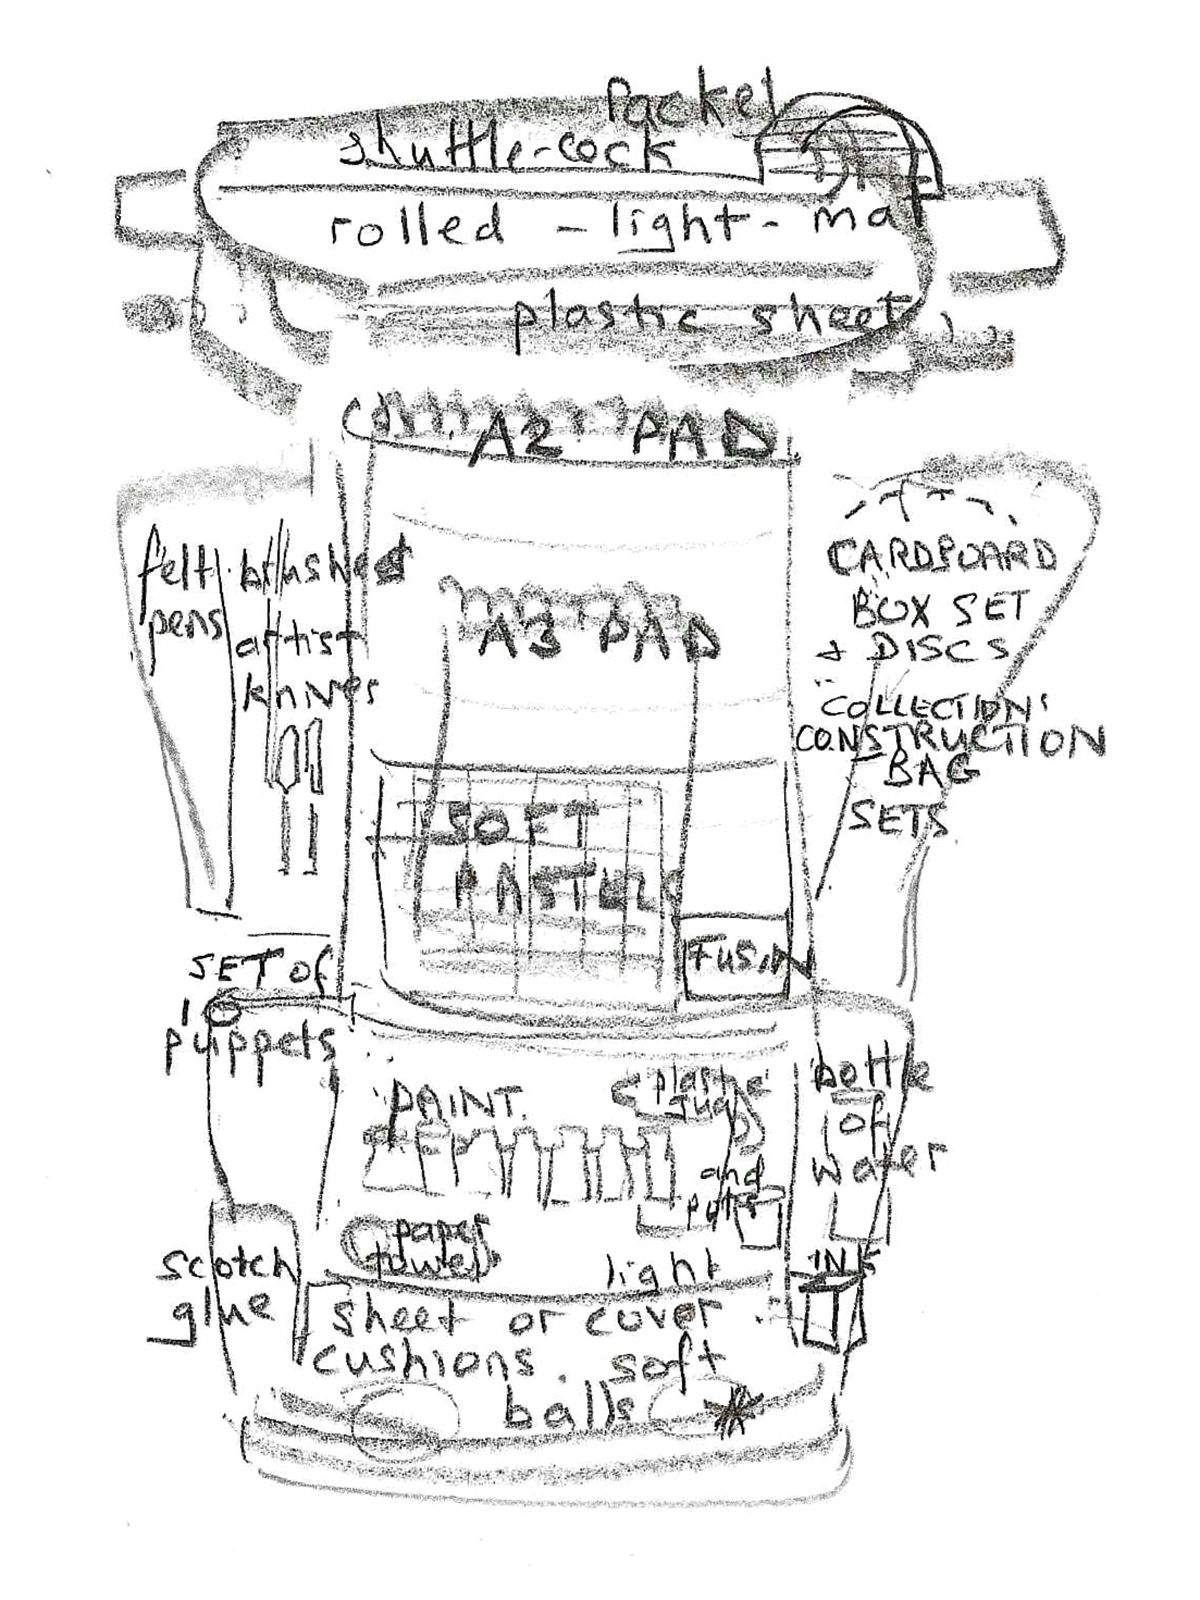 Packet
shuttle-cock
rolled - light - mat
plastic sheet
A2 PAD
felt
pens
brushes
artist
knives
A3 PAD
CARDBOARD
BOX SET
+ DISCS
COLLECTION
CONSTRUCTION
BAG
SETS
SOFT
PASTELS
FUSIN
SET OF
puppets
PAINT
plastic
and
pots
bottle
of
water
paper
towels
INK
scotch
glue
light
sheet or cover
cushions. soft
balls